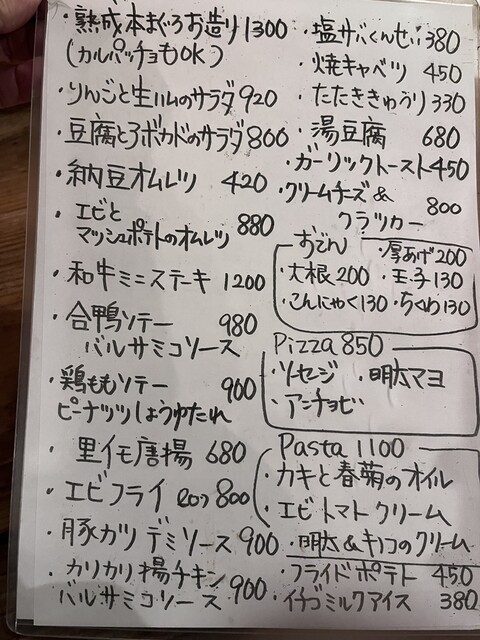 ・熟成本まぐろお造り1300
(カルパッチョもOK)
・りんごと生ハムのサラダ920
・豆腐とアボカドのサラダ800
・納豆オムレツ 420
・エビと
マッシュポテトのオムレツ 880
・和牛ミニステーキ 1200
・合鴨ソテー
バルサミコソース 980
・鶏ももソテー
ピーナッツしょうゆたれ 900
・里イモ唐揚 680
・エビフライ 2ヶ 800
・豚カツ デミソース 900
・カリカリ揚チキン
バルサミコソース 900
・塩サバくんせい380
・焼キャベツ 450
・たたききゅうり 330
・湯豆腐 680
・ガーリックトースト450
・クリームチーズ&
クラッカー 800
おでん ・厚あげ200
・大根200 ・玉子130
・こんにゃく130 ・ちくわ130
Pizza 850
・ソーセジ ・明太マヨ
・アンチョビ
Pasta 1100
・カキと春菊のオイル
・エビトマトクリーム
・明太&キノコのクリーム
・フライドポテト 450
・イチゴミルクアイス 380